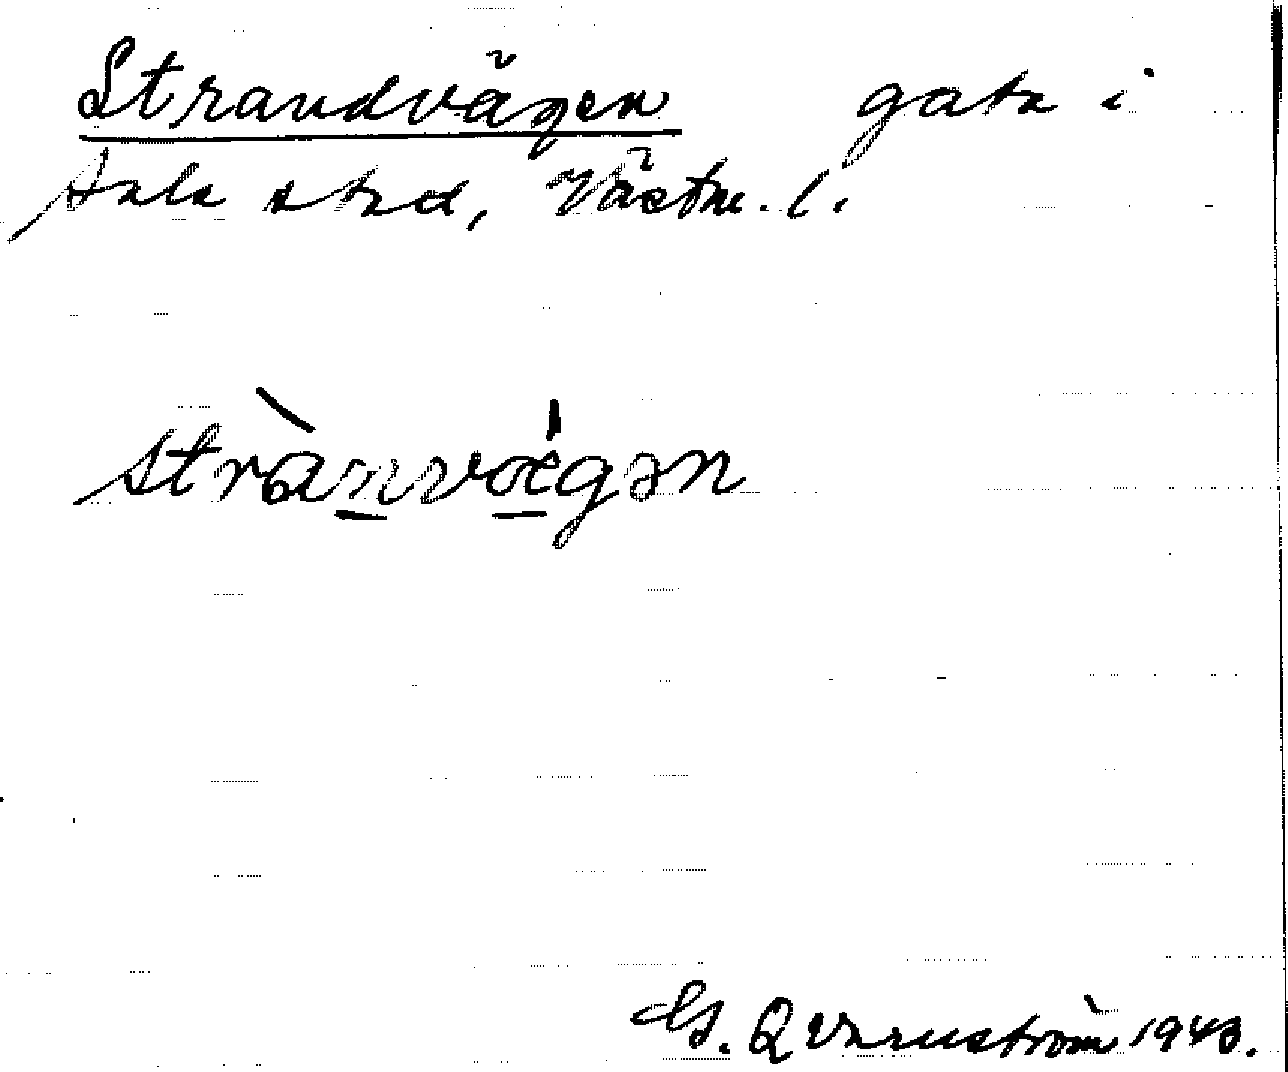 Strandvägen gata i
Sala stad, Västm. l.
strànvǽgən
G. Qvarnström 1943.